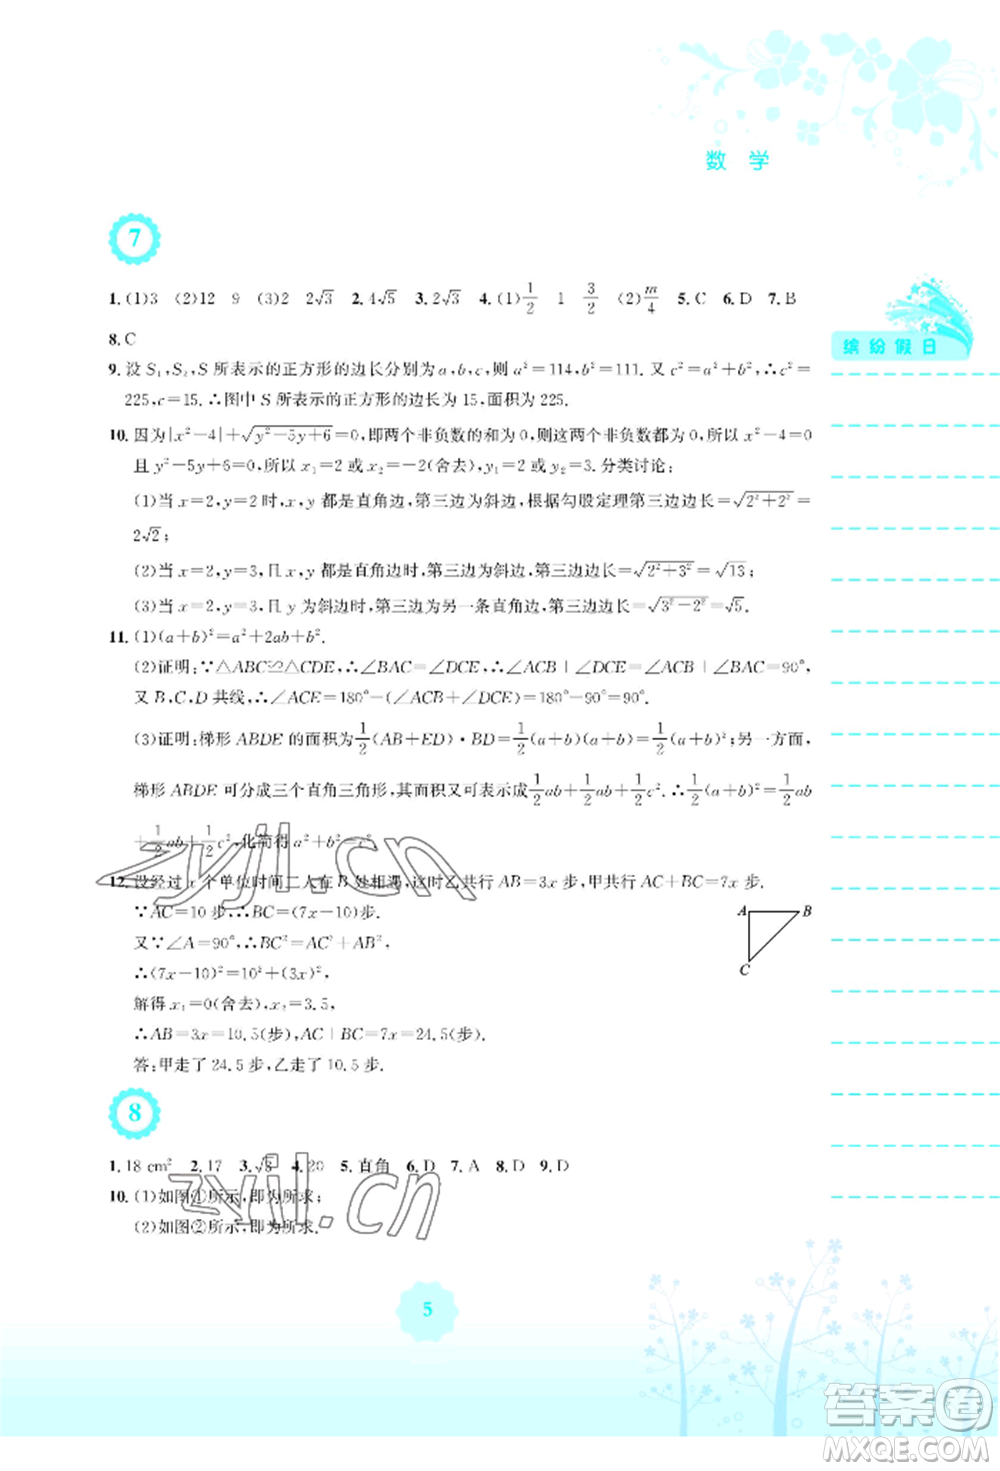 数 学
7
1. (1)3 (2)12 9 (3)2 2√3 2. 4√5 3. 2√3 4. (1)1/2 1 3/2 (2)m/4 5. C 6. D 7. B
8. C
缤纷假日
9. 设 S₁,S₂,S 所表示的正方形的边长分别为 a,b,c,则 a²=114,b²=111. 又∵a²+b²=c²,∴c²=
225,c=15. ∴图中 S 所表示的正方形的边长为 15,面积为 225.
10. 因为|x²-4|+√(y²-5y+6)=0,即两个非负数的和为 0,则这两个非负数都为 0,所以 x²-4=0
且 y²-5y+6=0,所以 x₁=2 或 x₂=-2(舍去),y₁=2 或 y₂=3. 分类讨论;
(1)当 x=2,y=2 时,x,y 都是直角边,第三边为斜边,根据勾股定理第三边长=√(2²+2²)=
2√2;
(2)当 x=2,y=3,且 x,y 都是直角边时,第三边为斜边,第三边长=√(2²+3²)=√13;
(3)当 x=2,y=3,且 y 为斜边时,第三边为另一条直角边,第三边长=√(3²-2²)=√5.
11. (1)(a+b)²=a²+2ab+b².
(2)证明:∵△ABC≌△CDE,∴∠BAC=∠DCE,∴∠ACB+∠DCE=∠ACB+∠BAC=90°,
又 B,C,D 共线,∴∠ACE=180°-(∠ACB+∠DCE)=180°-90°=90°.
(3)证明:梯形 ABDE 的面积为1/2(AB+ED)·BD=1/2(a+b)(a+b)=1/2(a+b)²;另一方面,
梯形 ABDE 可分成三个直角三角形,其面积又可表示成1/2ab+1/2ab+1/2c². ∴1/2(a+b)²=1/2ab
+1/2ab+1/2c²,化简得 a²+b²=c².
12. 设经过 x 个单位时间二人在 B 处相遇,这时乙共行 AB=3x 步,甲共行 AC+BC=7x 步.
∵AC=10 步,∴BC=(7x-10)步.
又∵∠A=90°,∴BC²=AC²+AB².
∴(7x-10)²=10²+(3x)².
解得 x₁=0(舍去),x₂=3.5,
∴AB=3x=10.5(步),AC+BC=7x=24.5(步).
答:甲走了 24.5 步,乙走了 10.5 步.
A B
C
8
1. 18 cm² 2. 17 3. √8 4. 20 5. 直角 6. D 7. A 8. D 9. D
10. (1)如图①所示,即为所求;
(2)如图②所示,即为所求.
5
zyjl.cn
zyjl.cn
答案圈
MXQE.COM